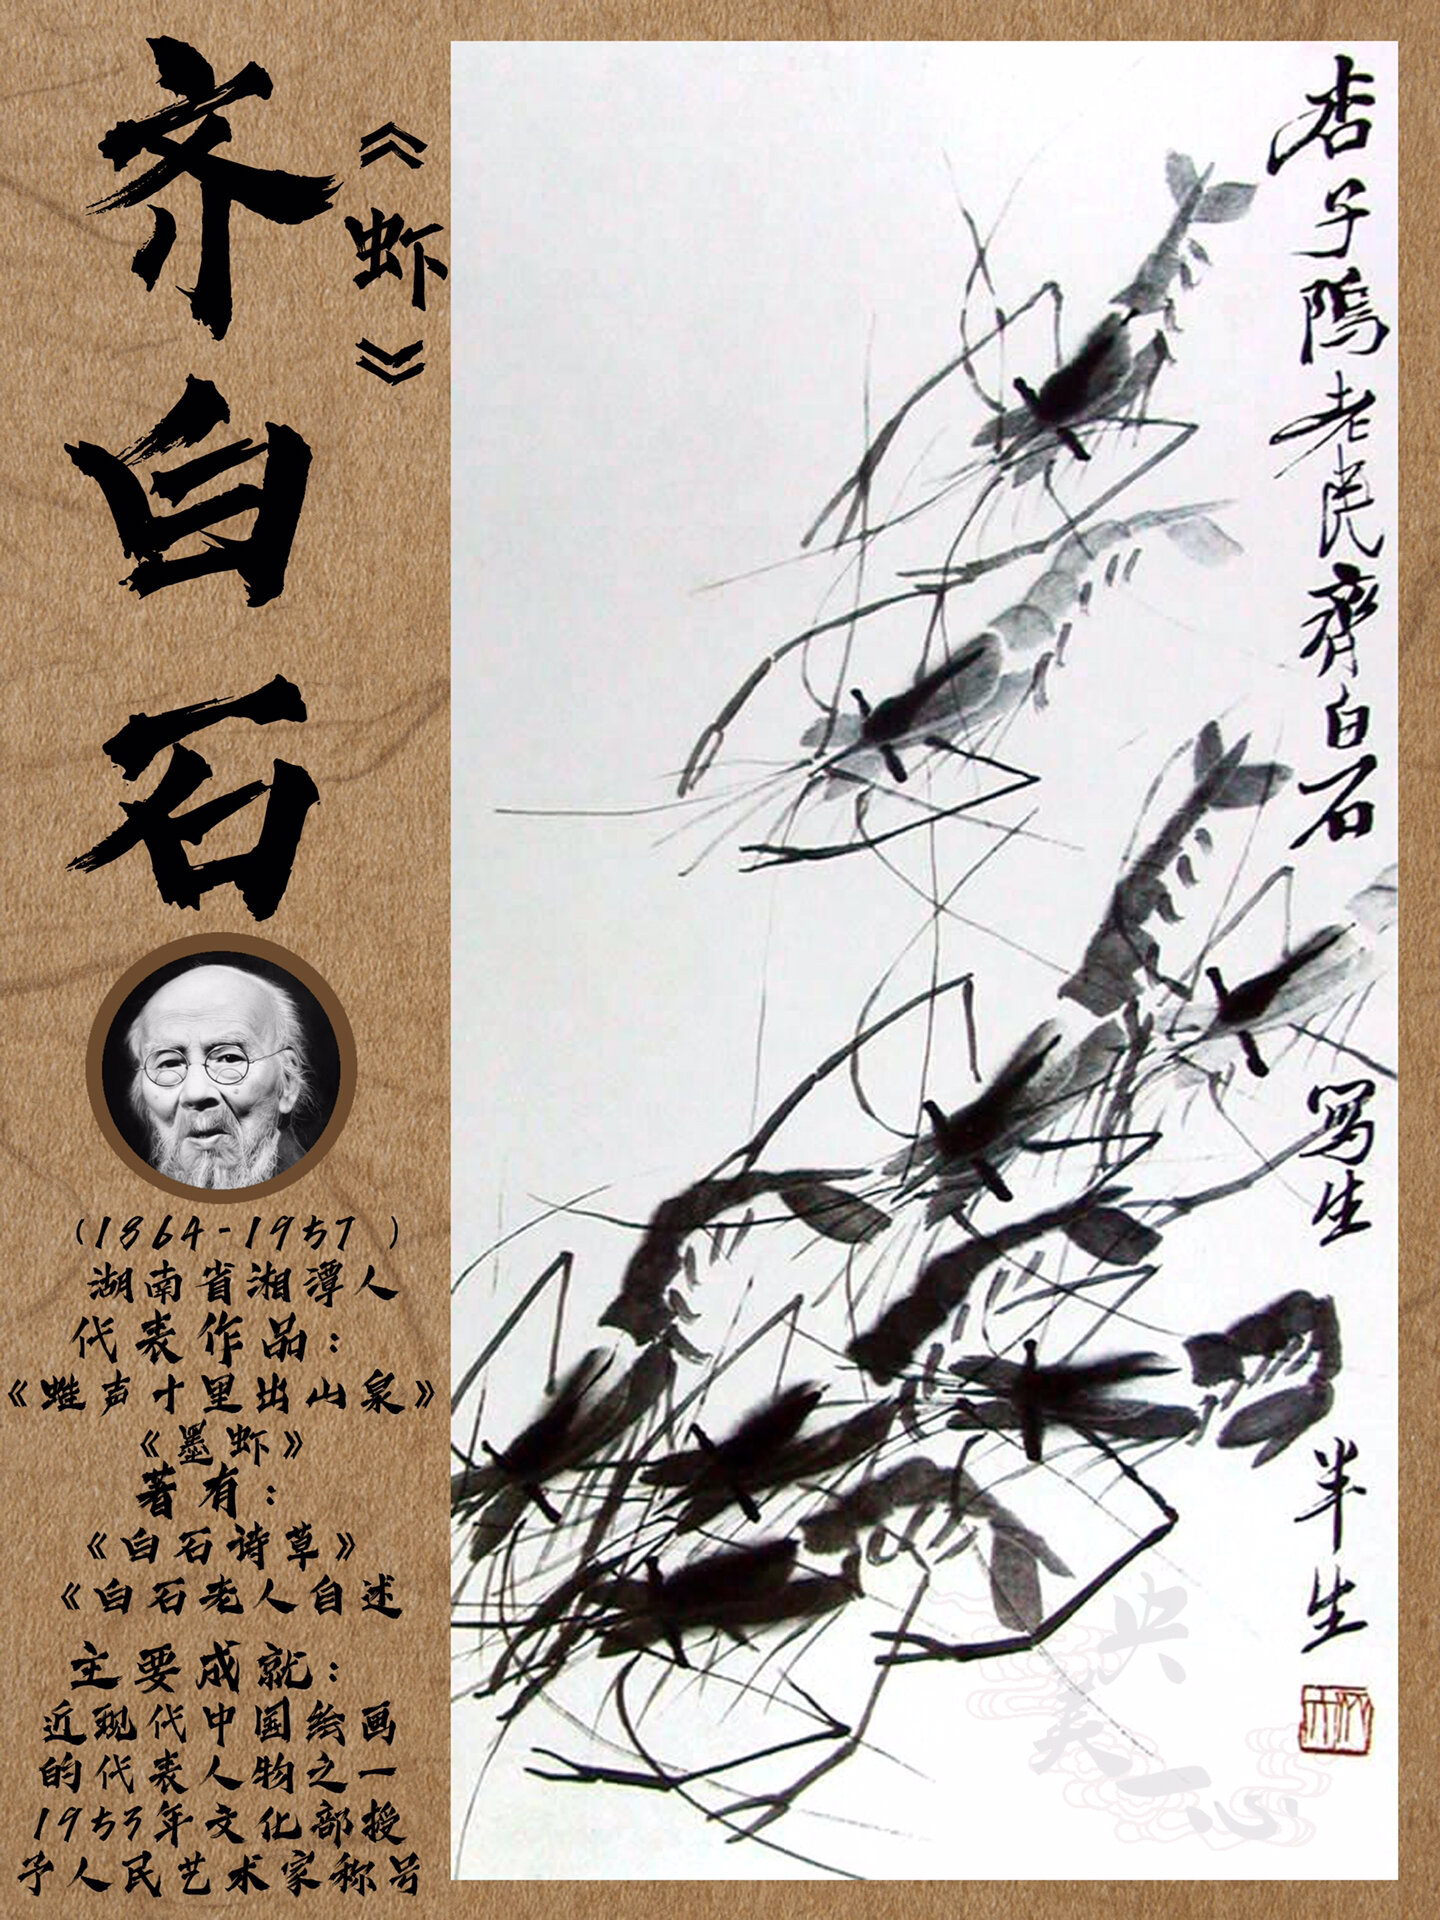 齐白石
《虾》
(1864-1957 )
湖南省湘潭人
代表作品：
《蛙声十里出山泉》
《墨虾》
著有：
《白石诗草》
《白石老人自述
主要成就：
近现代中国绘画
的代表人物之一
1953年文化部授
予人民艺术家称号
杏子隖老民齊白石
寫生
半生
央美一心